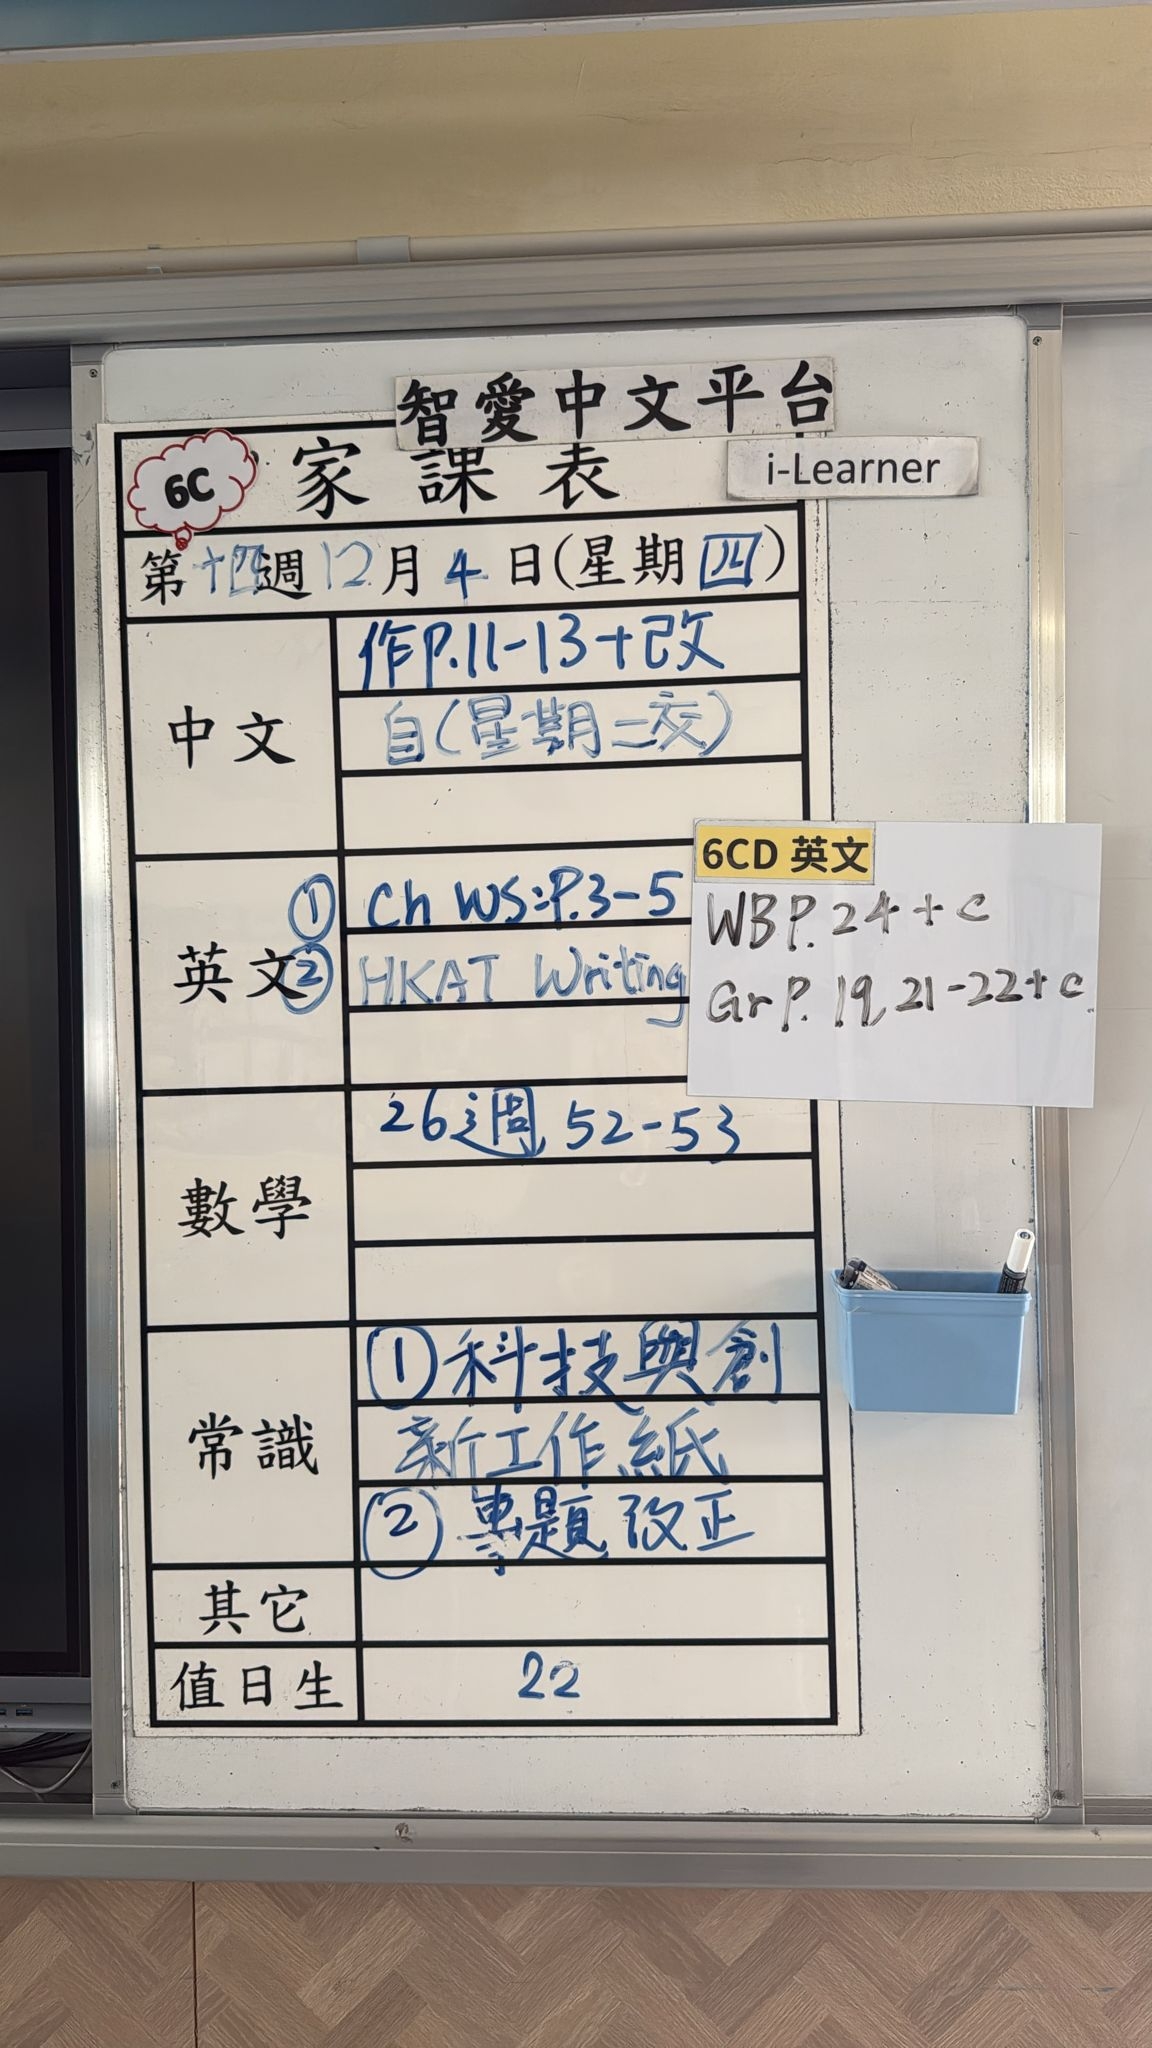 智愛中文平台
i-Learner
6C 家課表
第十四週12月4日(星期四)
中文
作P.11-13+改
自(星期二交)
英文
① Ch WS:P.3-5
② HKAT Writing
6CD 英文
WB P.24+c
Gr P.19,21-22+c
數學
26週 52-53
常識
①科技與創
新工作紙
②專題改正
其它
值日生
22